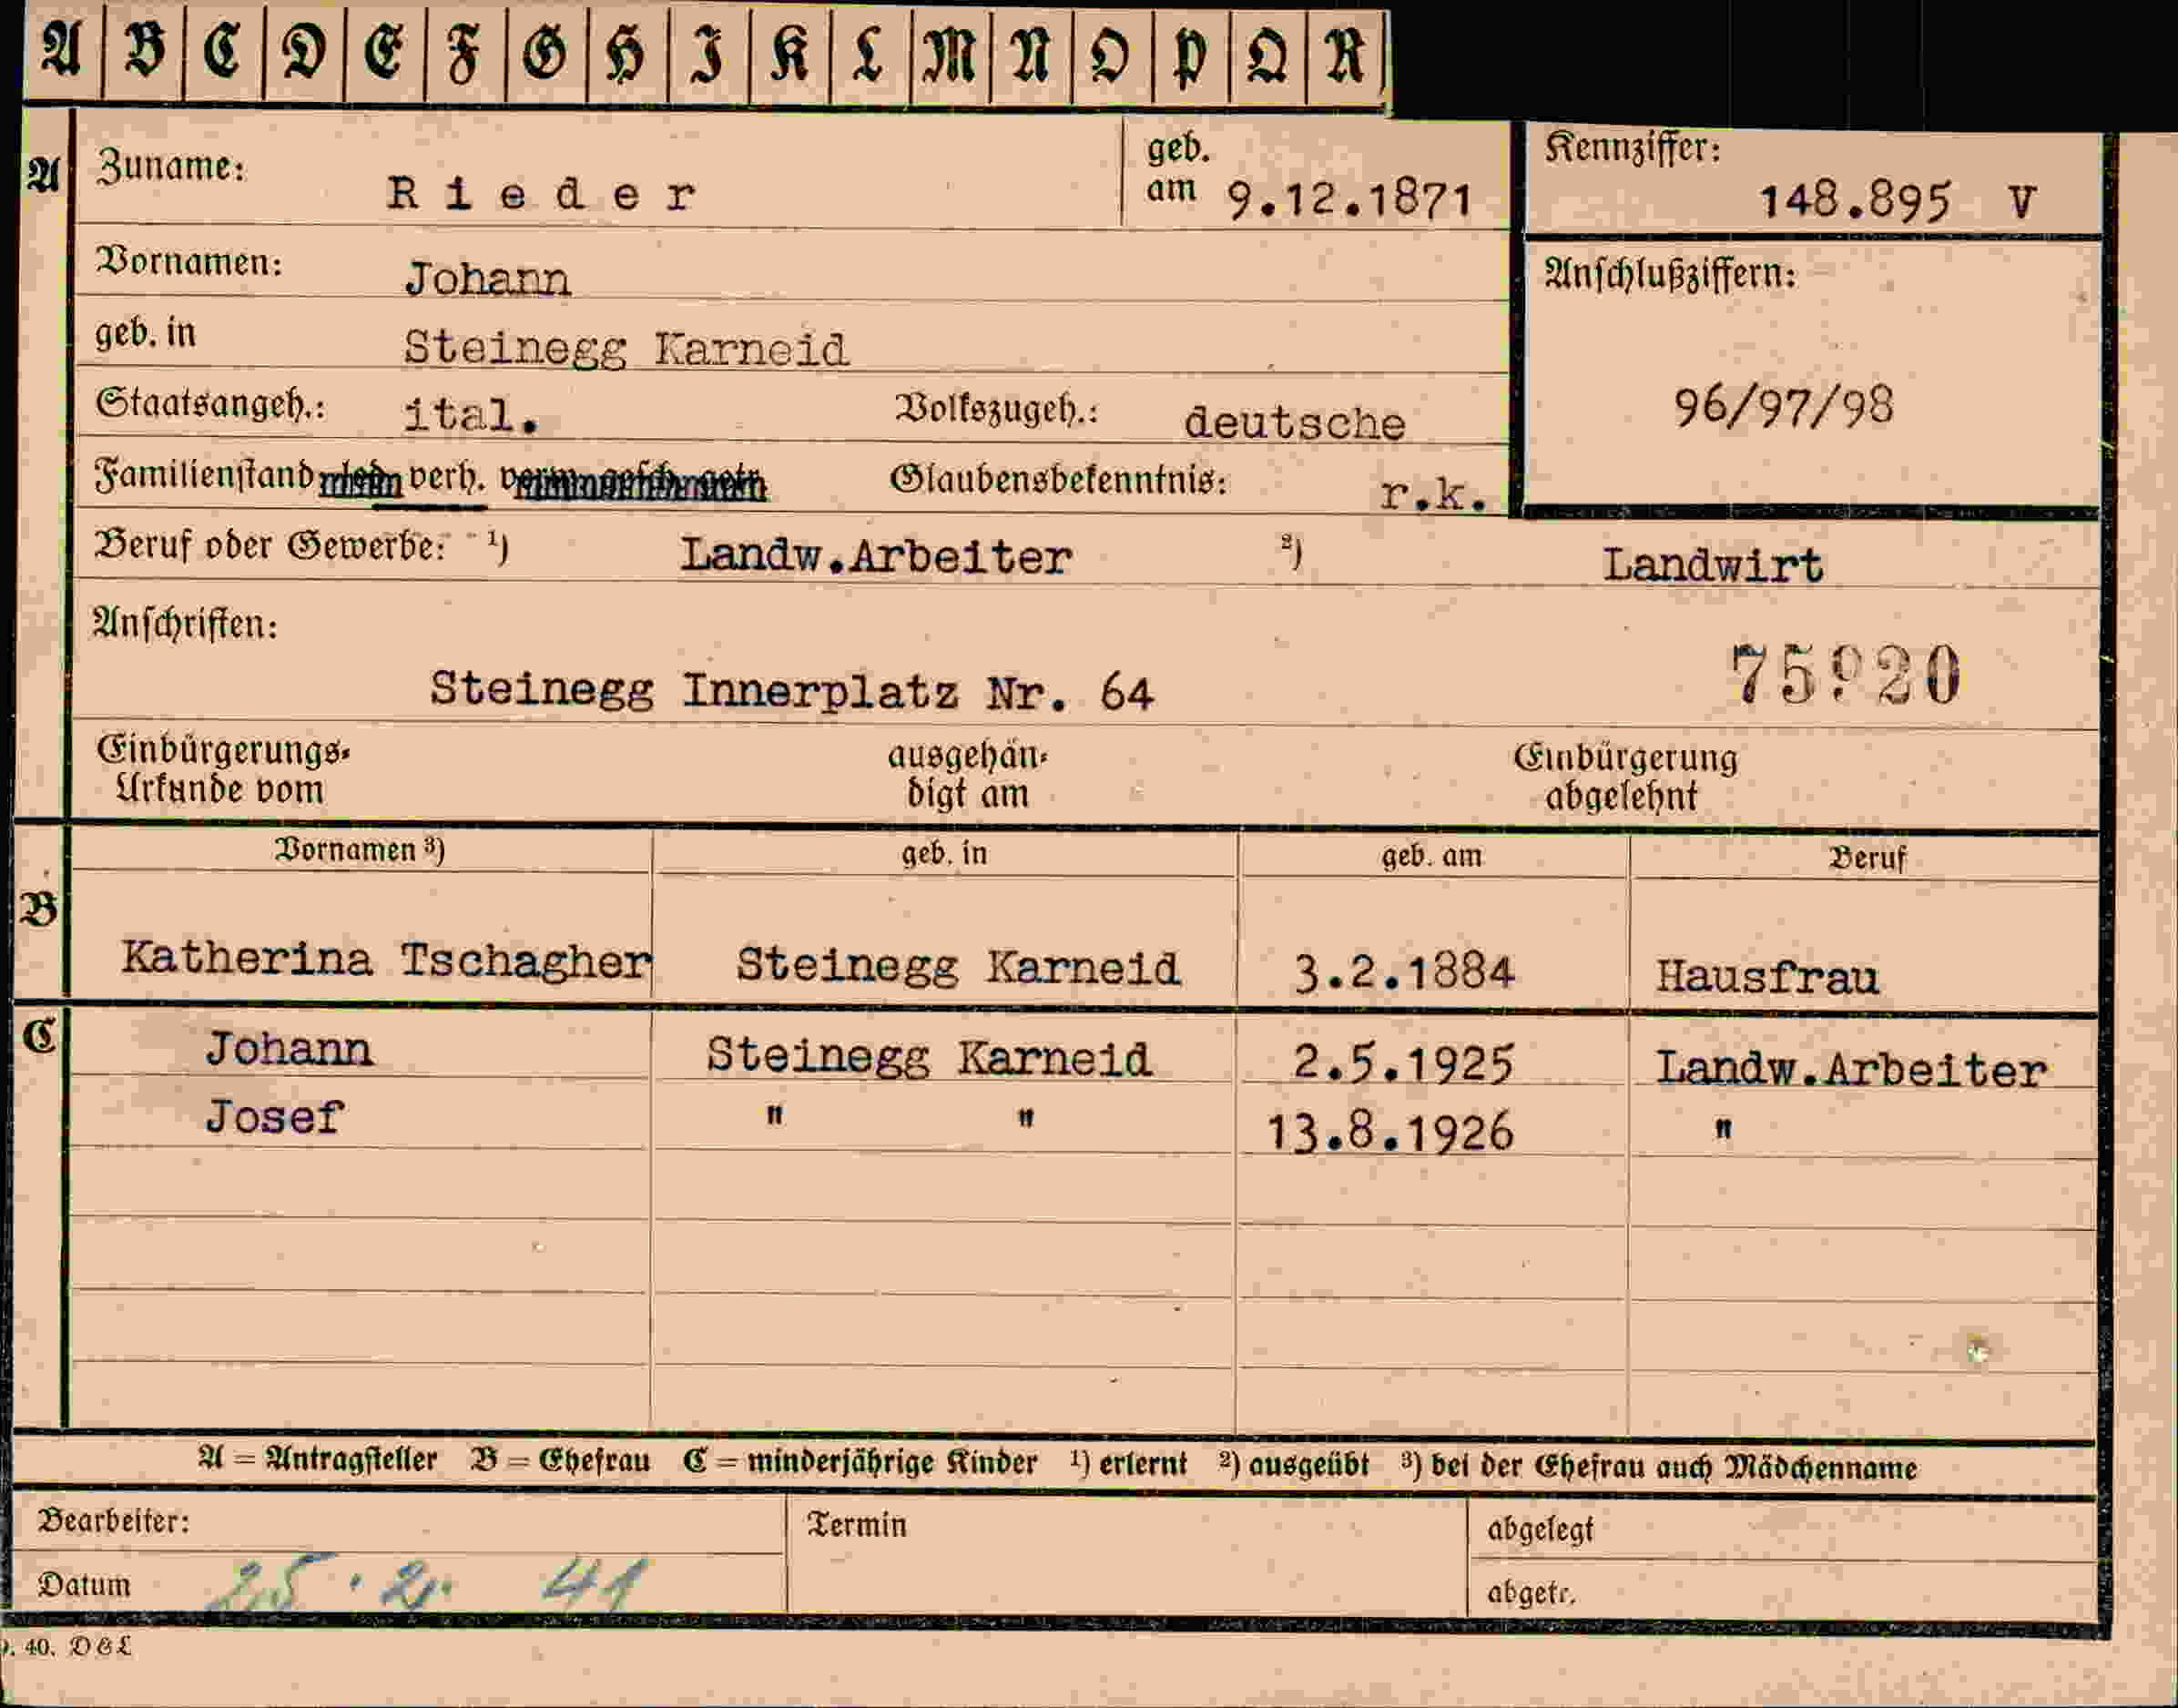 A B C D E F G H I K L M N O P Q R
A Zuname: Rieder geb. am 9.12.1871 Kennziffer: 148.895 V
Vornamen: Johann Anschlußziffern:
geb. in Steinegg Karneid
Staatsangeh.: ital. Volkszugeh.: deutsche 96/97/98
Familienstand verh. Glaubensbekenntnis: r.k.
Beruf oder Gewerbe: ¹) Landw.Arbeiter ²) Landwirt
Anschriften:
Steinegg Innerplatz Nr. 64
Einbürgerungs- ausgehän- Einbürgerung
Urkunde vom digt am abgelehnt
Vornamen ³) geb. in geb. am Beruf
B
Katherina Tschagher Steinegg Karneid 3.2.1884 Hausfrau
C Johann Steinegg Karneid 2.5.1925 Landw.Arbeiter
Josef " " 13.8.1926 "
A = Antragsteller B = Ehefrau C = minderjährige Kinder ¹) erlernt ²) ausgeübt ³) bei der Ehefrau auch Mädchenname
Bearbeiter: Termin abgelegt
Datum 25. 2. 41 abgetr.
40. DGL